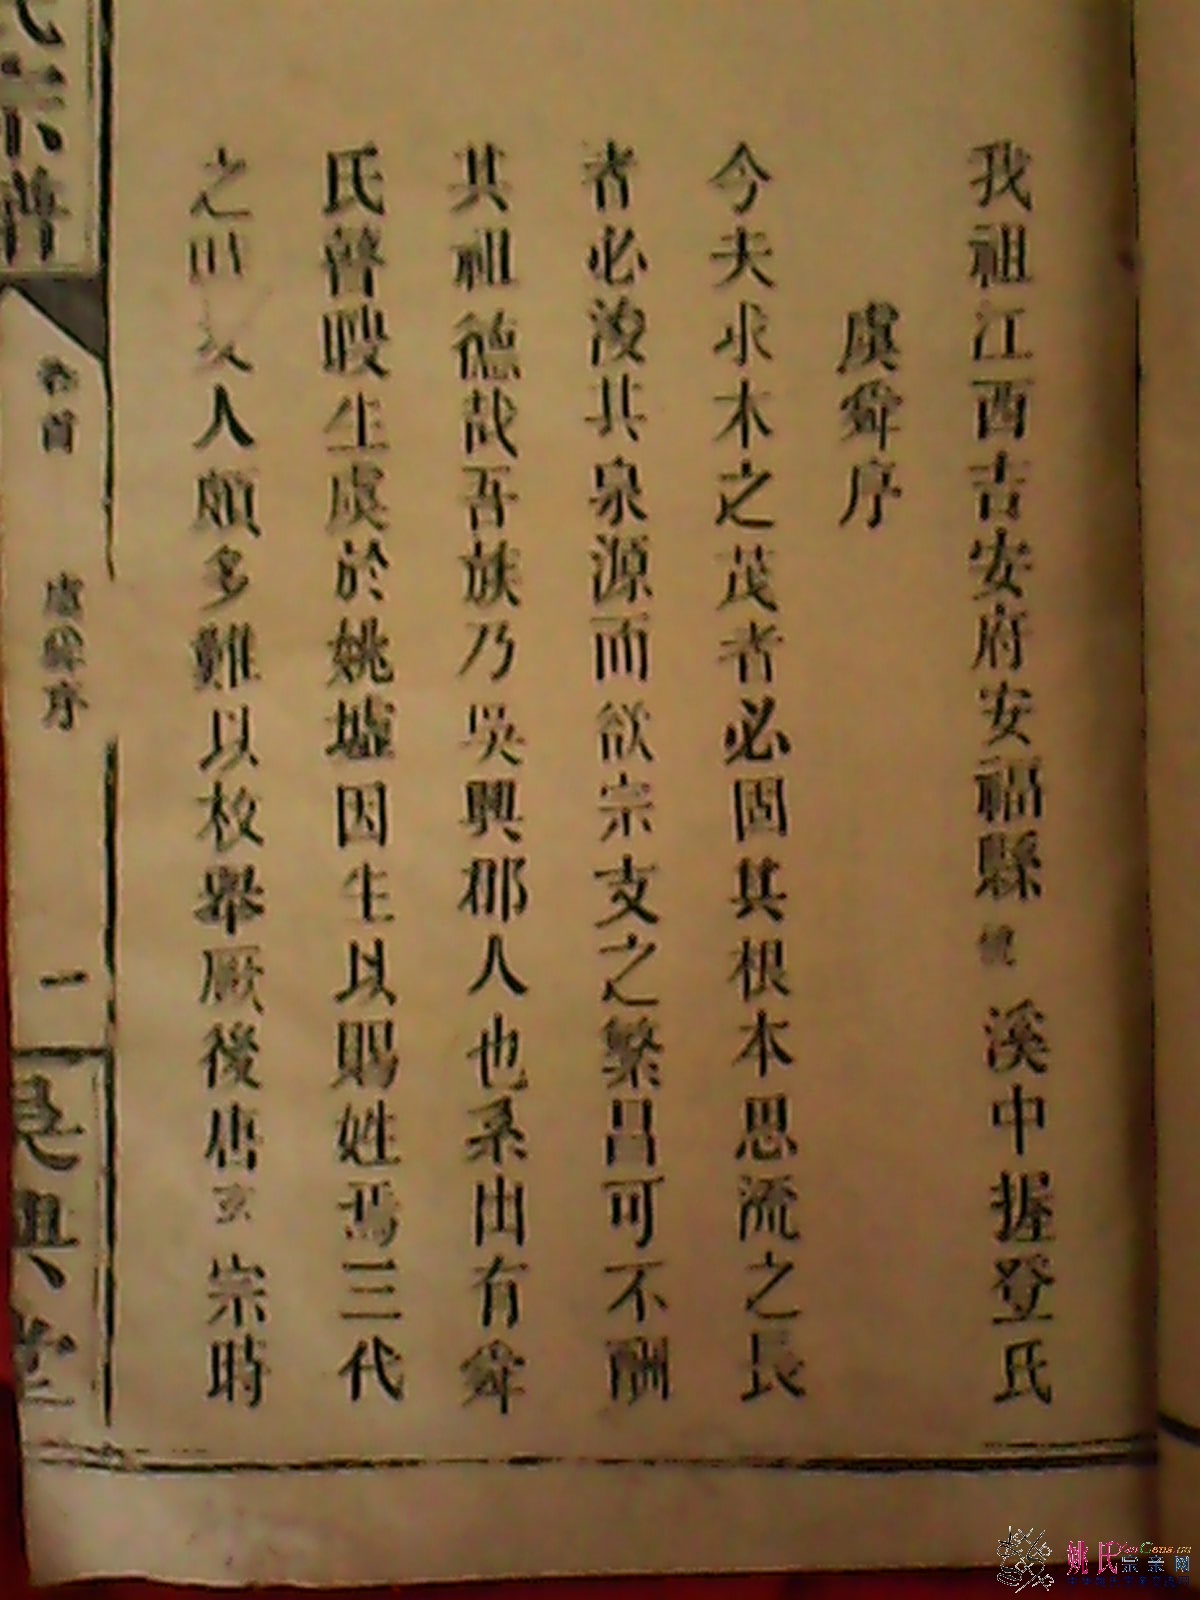 我祖江西吉安府安福縣溪中握登氏
虞舜序
今夫求木之茂者必固其根本思流之長
者必浚其泉源而欲宗支之繁昌可不酬
其祖德哉吾族乃吳興郡人也系出有舜
氏瞽瞍生虞於姚墟因生以賜姓焉三代
之時人頗多難以枚舉厥後唐玄宗時
氏宗譜
卷首
虞舜序
一
吳興堂
姚氏宗亲网